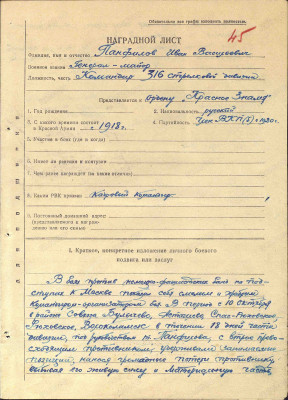 Обязательно все графы заполнять правильно.
45
НАГРАДНОЙ ЛИСТ
Фамилия, имя и отчество Панфилов Иван Васильевич
Военное звание Генерал-майор
Должность, часть Командир 316 стрелковой дивизии
Представляется к ордену „Красное Знамя"
1. Год рождения
2. Национальность русский
3. С какого времени состоит в Красной Армии с 1918 г.
4. Партийность Член ВКП(б) с 1920 г.
5. Участие в боях (где и когда)
6. Имеет ли ранения и контузии
7. Чем ранее награжден (за какие отличия)
8. Каким РВК призван Кадровый командир
9. Постоянный домашний адрес
1. Краткое, конкретное изложение личного боевого
подвига или заслуг
В боях против немецко-фашистских войск на под-
ступах к Москве показал себя смелым и храбрым
командиром-организатором боя. В период с 10 октября
в районе Совхоза Булычево, Осташево, Спас-Рюховское,
Рюховское, Волоколамск в течении 18 дней части
дивизии, под руководством т. Панфилова, с втрое прево-
сходящим противником, удерживали занимаемые
позиции, нанося громадные потери противнику
выбивая его живую силу и материальную часть.